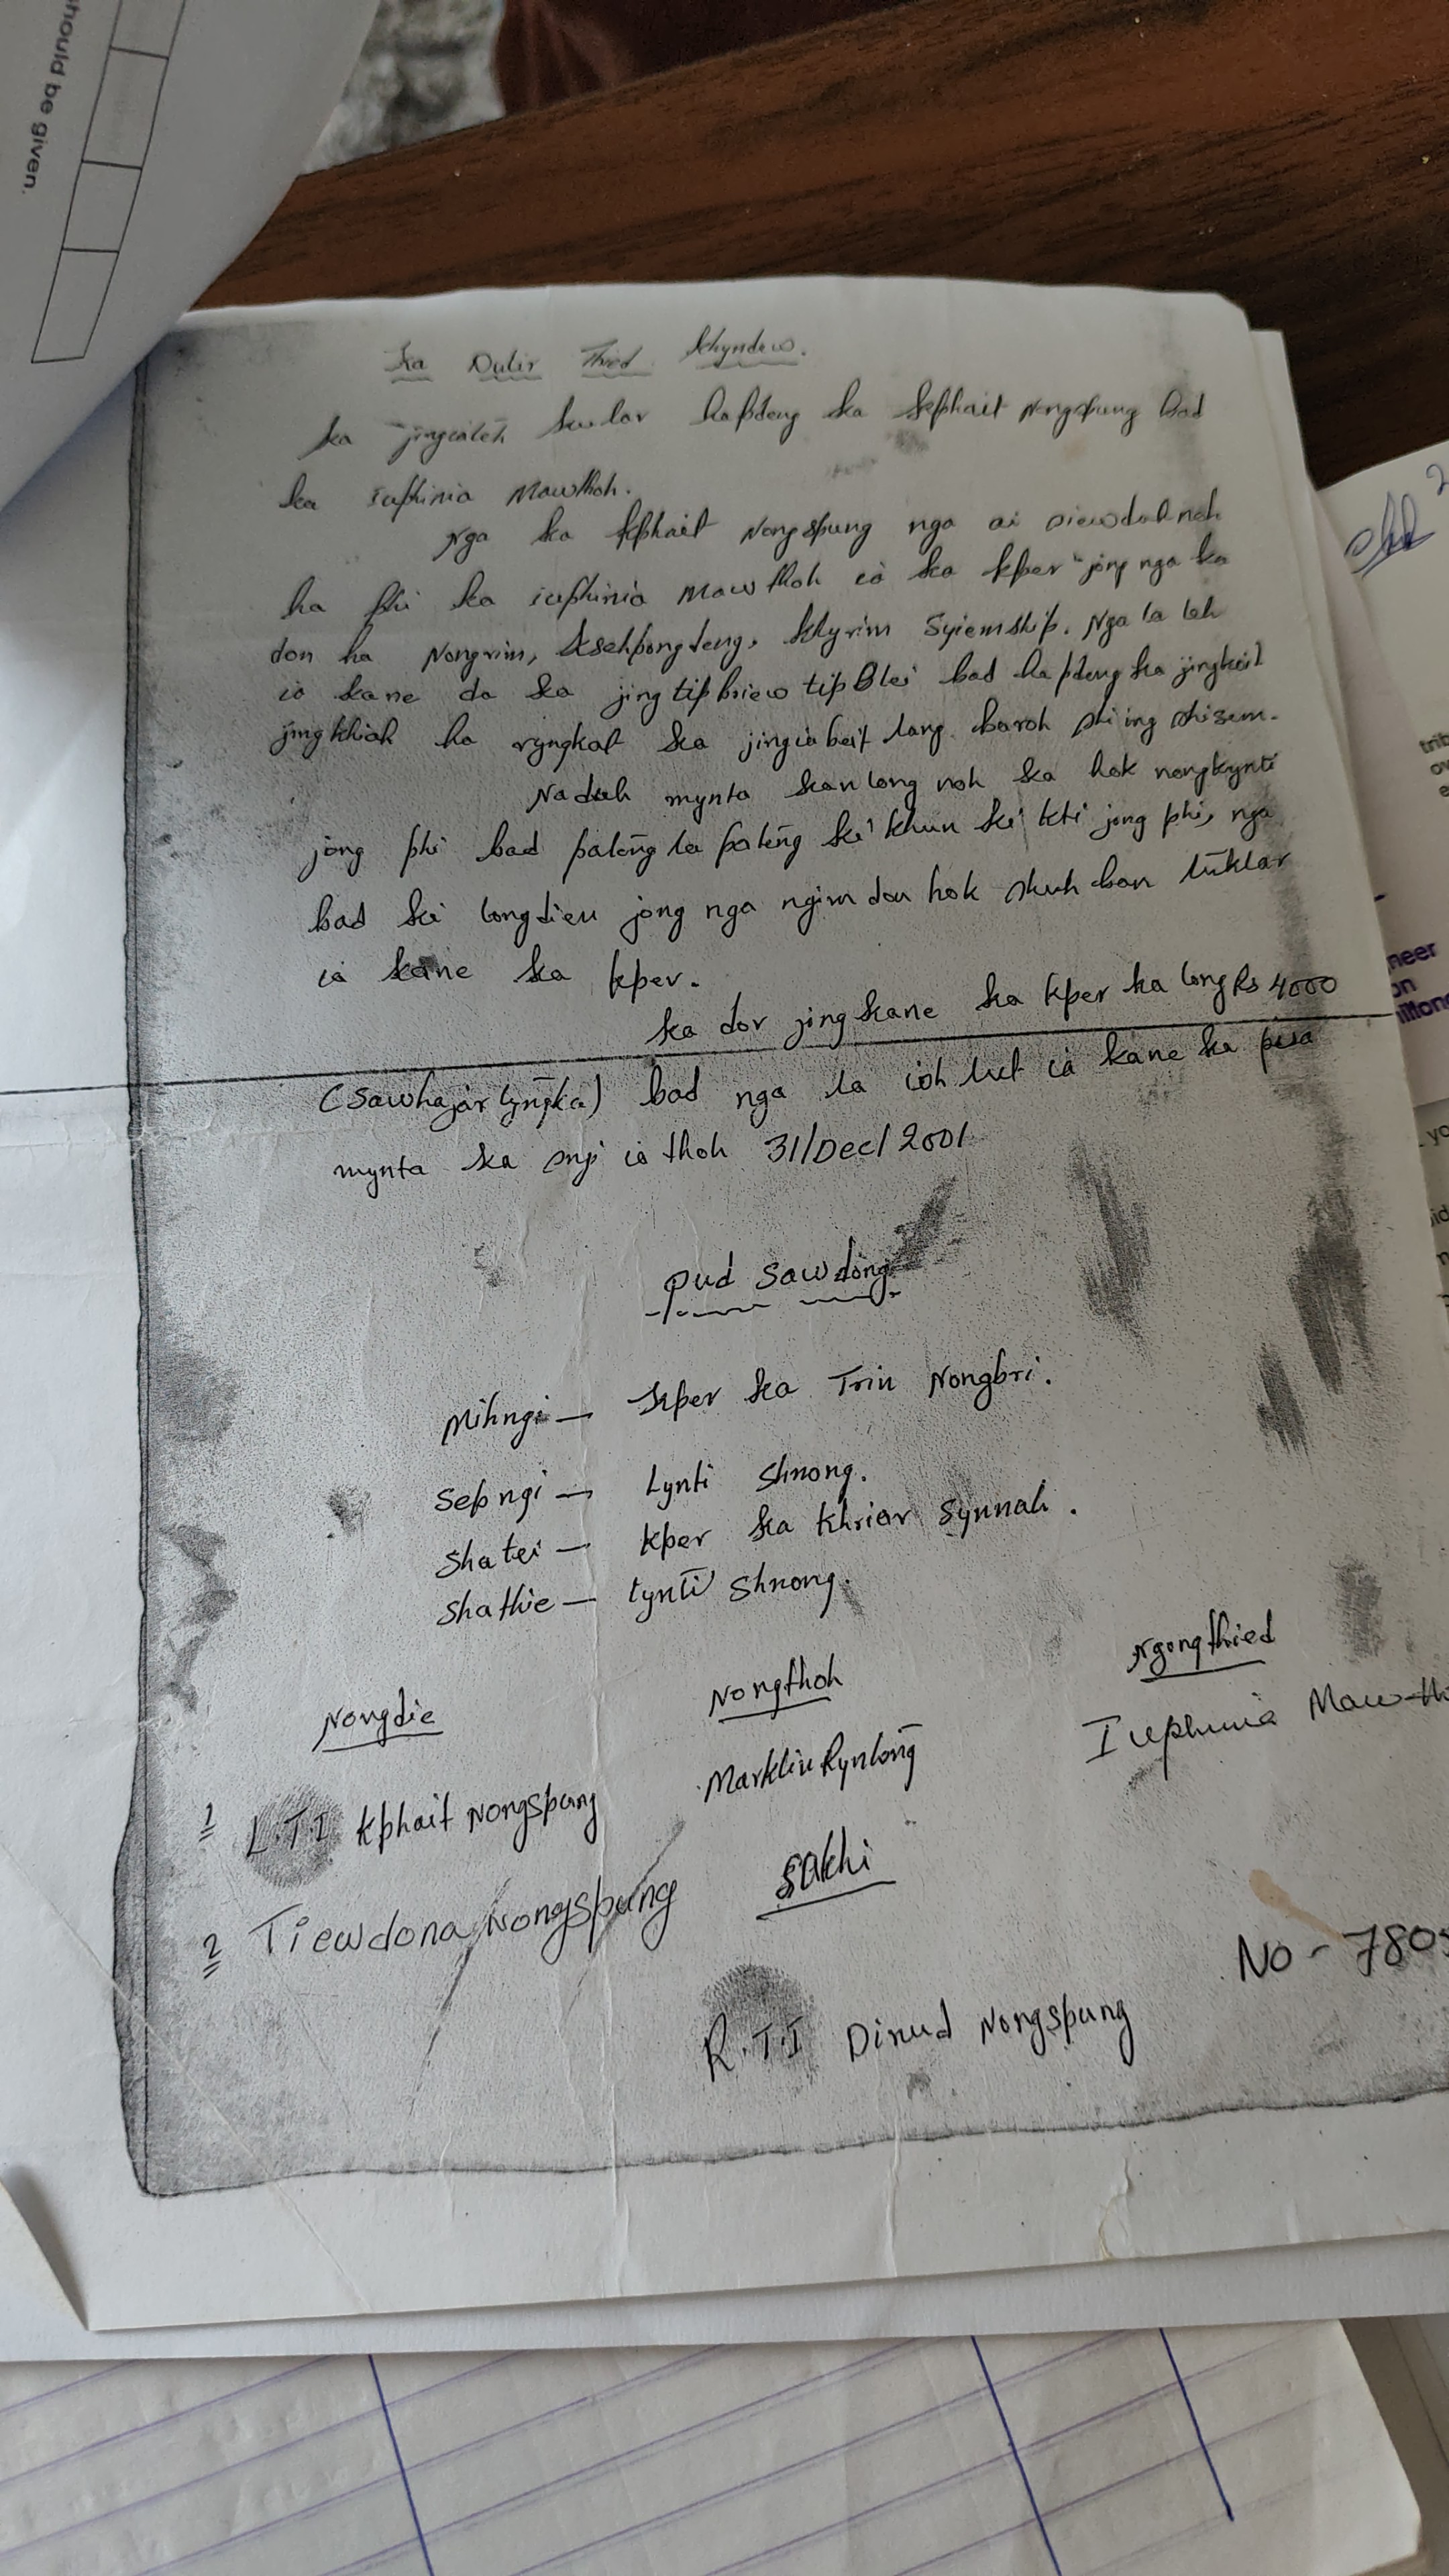 should be given.
Ka Dulir Thied Khyndew.
Ka jingiateh kular hapdeng ka Kphait Nongspung bad
ka Iuphinia Mawthoh.
Nga ka Kphait Nongspung nga ai siewdor noh
ha phi ka iuphinia Mawthoh ia ka kper jong nga ka
don ha Nongrim, Ksehpongdeng, Khyrim Syiemship. Nga la leh
ia kane da ka jingtipbriew tipBlei bad hapdeng ka jingkoit
jingkhiah ha ryngkat ka jingiabeit lang baroh shi ing shisem.
Naduh mynta kan long noh ka hok nongkynti
jong phi bad pateng la pateng ki khun ki kti jong phi, nga
bad ki longdien jong nga ngim don hok shuh ban tuklar
ia kane ka kper.
Ka dor jong kane ka kper ka long Rs 4000
(Sawhajar tyngka) bad nga la ioh lut ia kane ka pisa
mynta ka sngi ia thoh 31/Dec/2001
Pud Sawdong
Mihngi — Kper ka Trin Nongbri.
Sepngi — Lynti Shnong.
Shatei — Kper ka Khriar Synnah.
Shathie — Lynti Shnong.
Nongdie Nongthoh Ngongthied
1 L.T.I Kphait Nongspung Marklin Rynlong Iuphinia
2 Tiewdona Nongspung
Sakhi
R.T.I Dinud Nongspung
No - 780